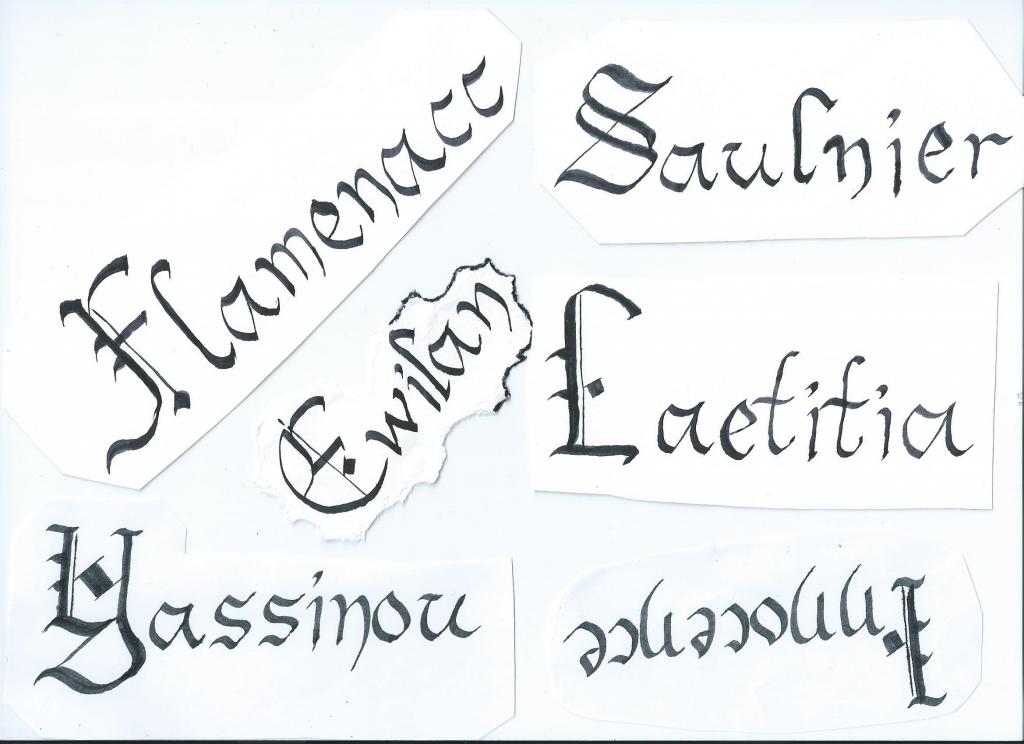 Flamenacc
Saulnier
Ewilan
Laetitia
Yassinou
Innocence